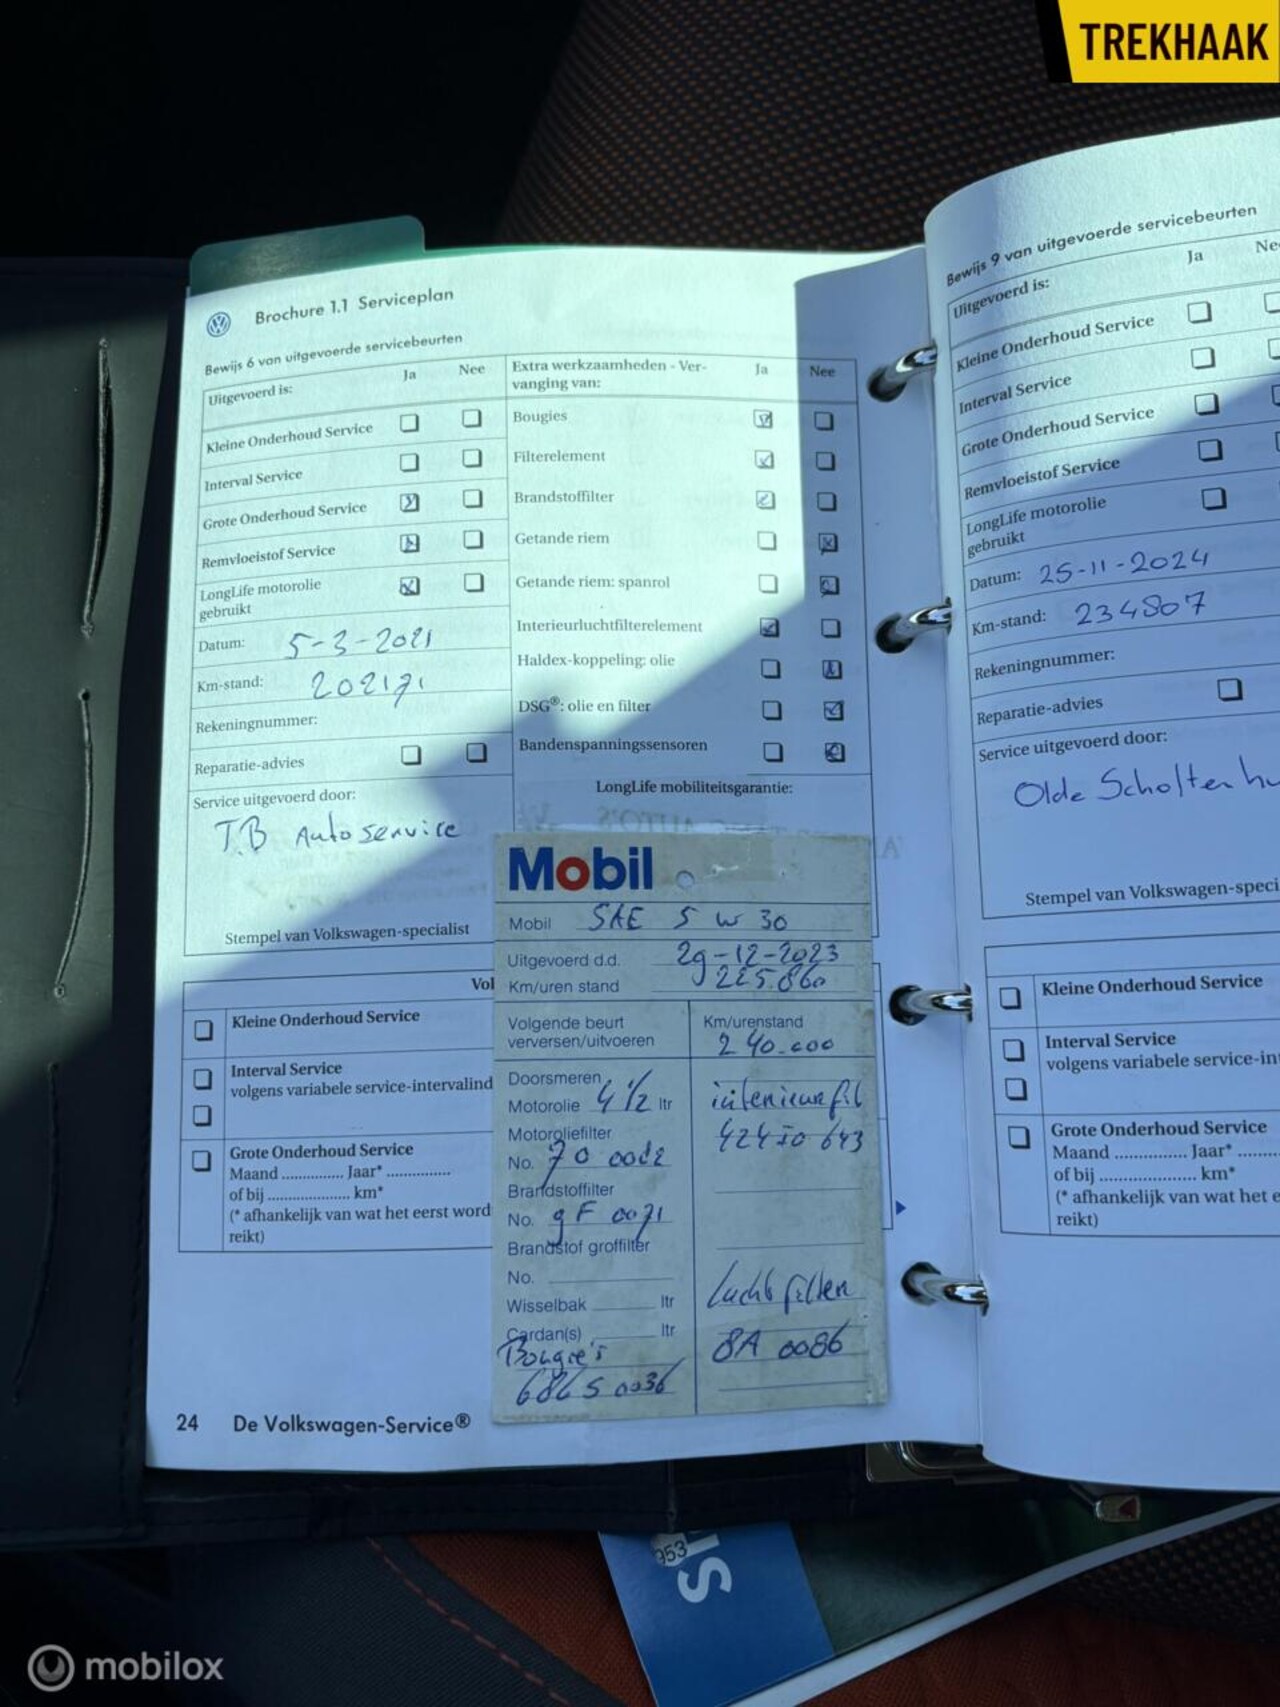 TREKHAAK
Brochure 1.1 Serviceplan
Bewijs 6 van uitgevoerde servicebeurten
Uitgevoerd is: Ja Nee
Kleine Onderhoud Service
Interval Service
Grote Onderhoud Service
Remvloeistof Service
LongLife motorolie
gebruikt
Datum: 5-3-2021
Km-stand: 202171
Rekeningnummer:
Reparatie-advies
Service uitgevoerd door:
T.B Autoservice
Stempel van Volkswagen-specialist
Extra werkzaamheden - Ver-
vanging van: Ja Nee
Bougies
Filterelement
Brandstoffilter
Getande riem
Getande riem: spanrol
Interieurluchtfilterelement
Haldex-koppeling: olie
DSG®: olie en filter
Bandenspanningssensoren
LongLife mobiliteitsgarantie:
Kleine Onderhoud Service
Interval Service
volgens variabele service-intervalind
Grote Onderhoud Service
Maand ............... Jaar* ...............
of bij .................... km*
(* afhankelijk van wat het eerst word
reikt)
24 De Volkswagen-Service®
Mobil
Mobil SAE 5 W 30
Uitgevoerd d.d. 29-12-2023
Km/uren stand 225.860
Volgende beurt
verversen/uitvoeren
Km/urenstand
240.000
Doorsmeren
Motorolie 4 1/2 ltr
Motoroliefilter
No. 70
Brandstoffilter
No. gF 0071
Brandstof groffilter
No.
Wisselbak ltr
Cardan(s) ltr
Bougie's
luchtfilter
8A 0086
Bewijs 9 van uitgevoerde servicebeurten
Uitgevoerd is: Ja Nee
Kleine Onderhoud Service
Interval Service
Grote Onderhoud Service
Remvloeistof Service
LongLife motorolie
gebruikt
Datum: 25-11-2024
Km-stand: 234807
Rekeningnummer:
Reparatie-advies
Service uitgevoerd door:
Olde Scholtenhu
Stempel van Volkswagen-speci
Kleine Onderhoud Service
Interval Service
volgens variabele service-in
Grote Onderhoud Service
Maand ............... Jaar* .........
of bij .................... km*
(* afhankelijk van wat het e
reikt)
953
mobilox